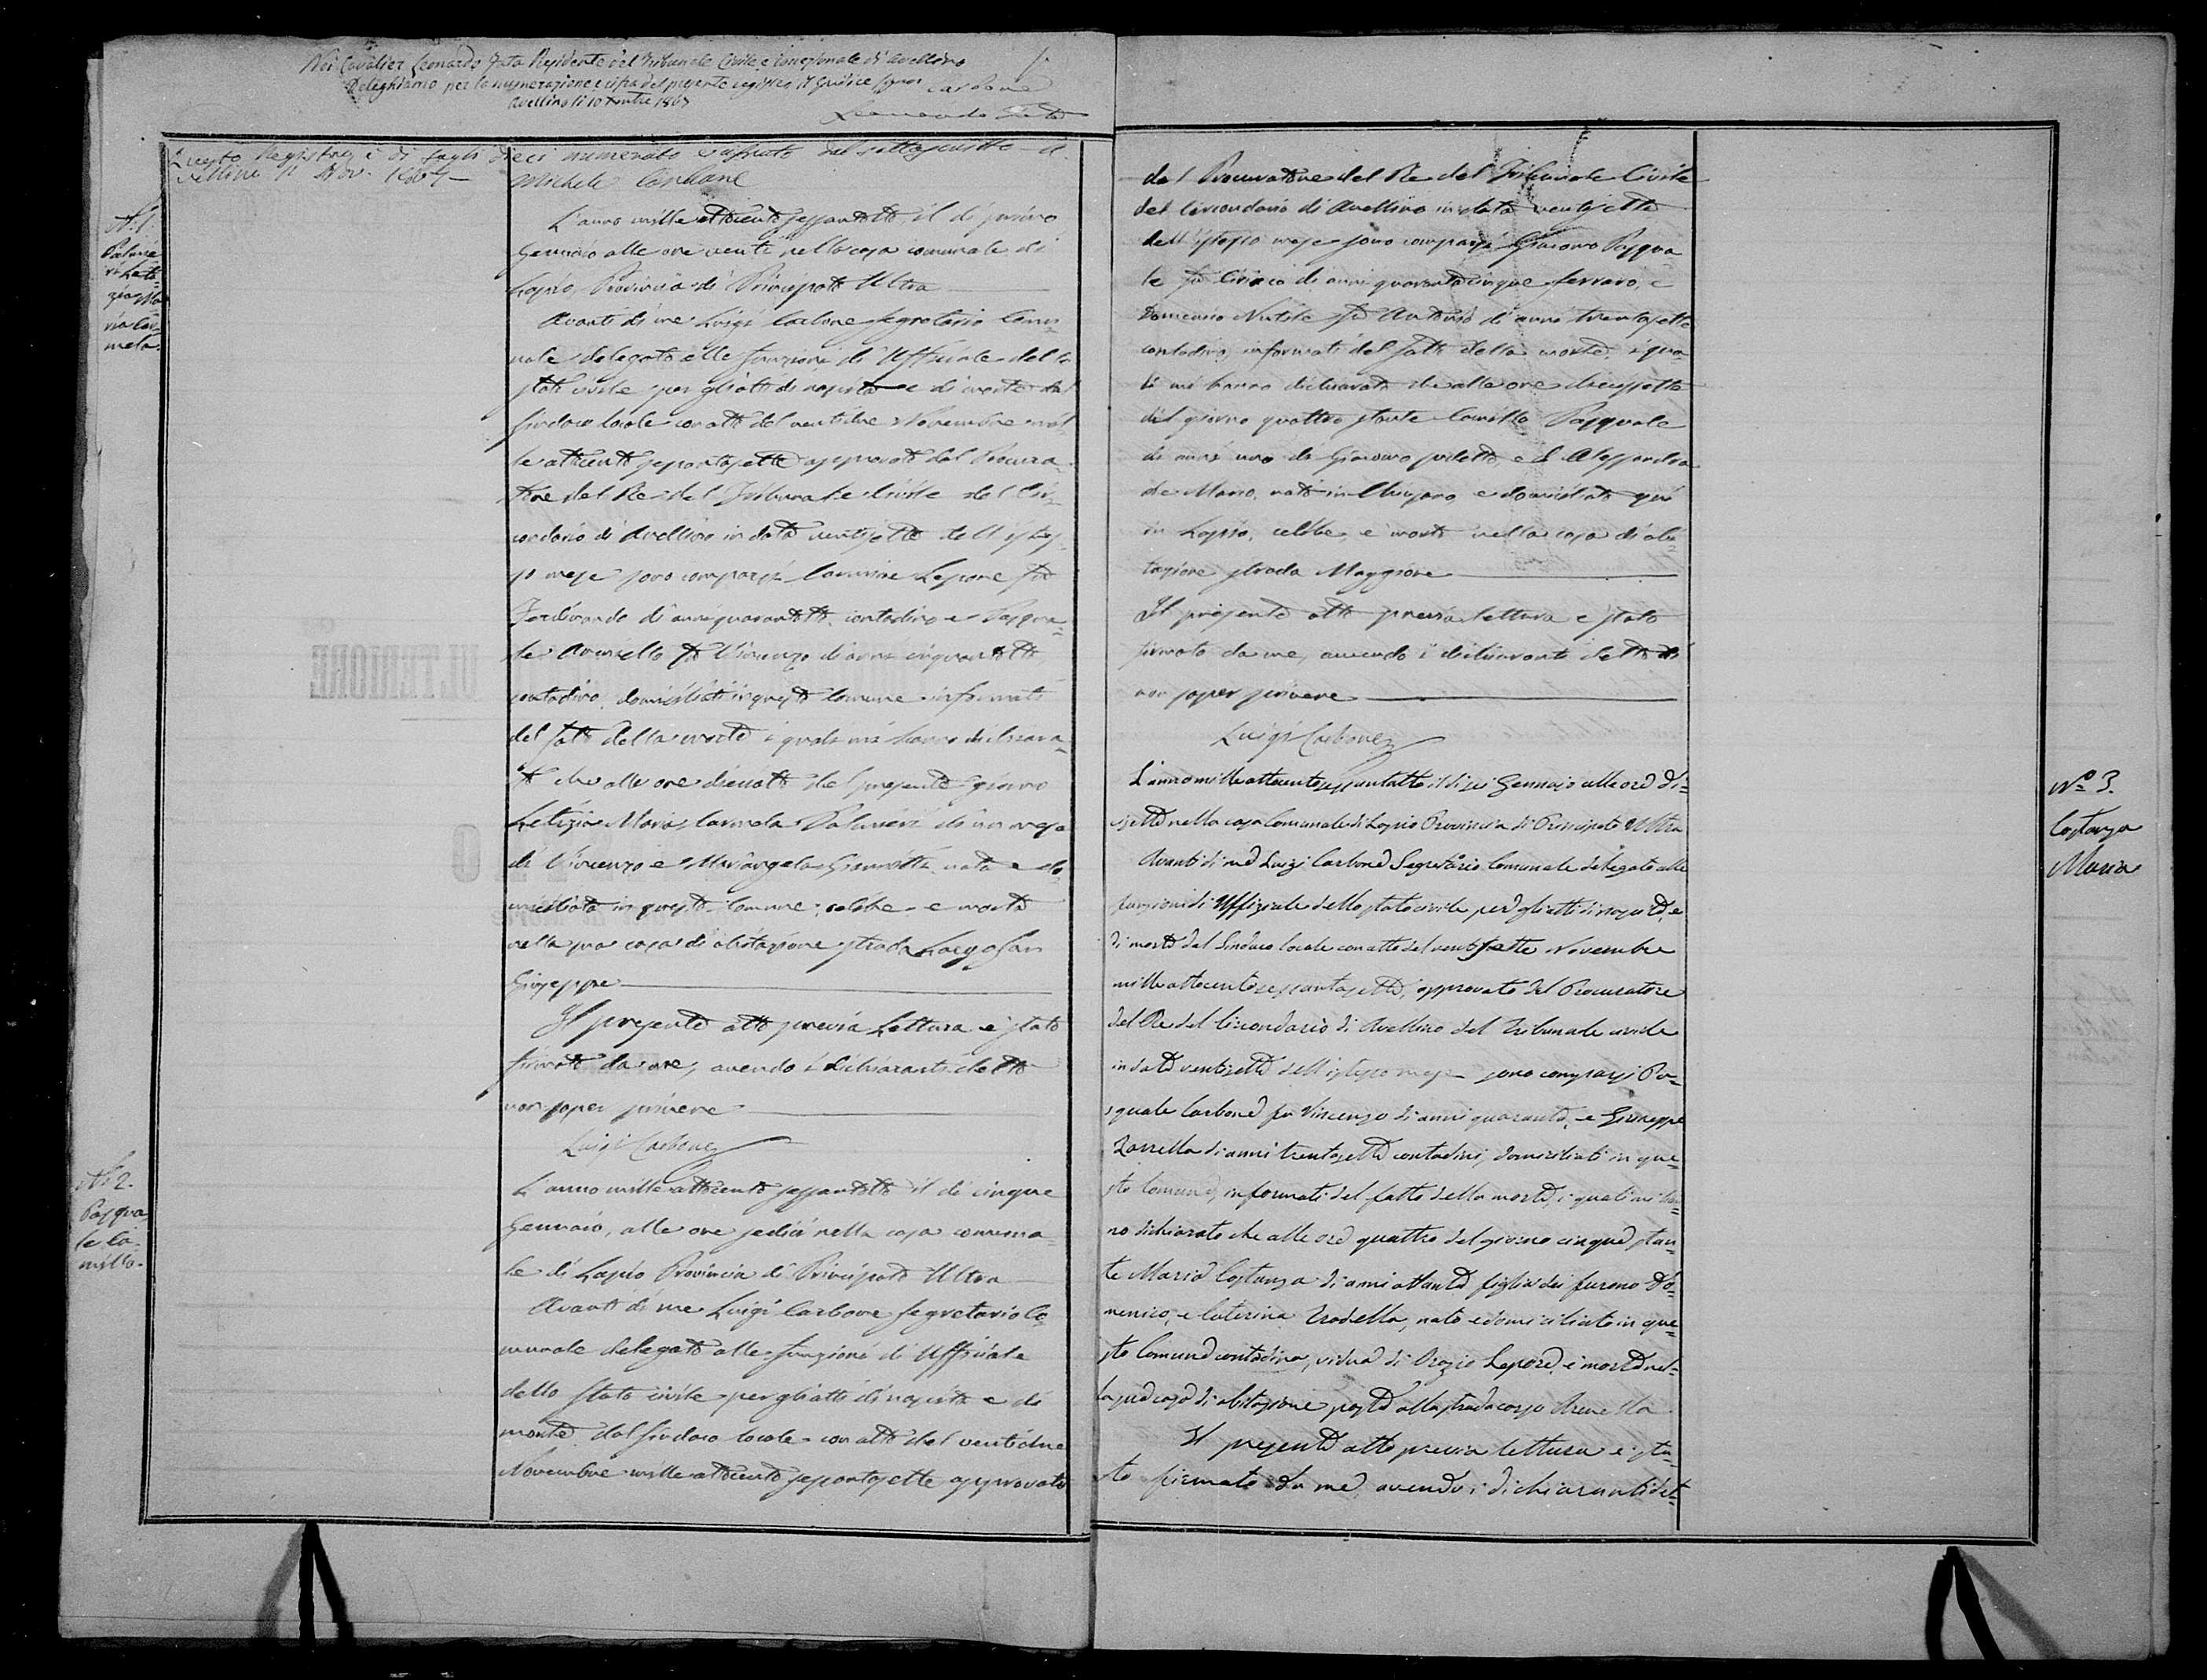 Noi Cavalier Leonardo Presidente del Tribunale Civile e Correzionale di Avellino
Deleghiamo per la numerazione e cifra del presente registro il Giudice Signor Carbone
Avellino li 10 1867
Leonardo
Questo Registro è di fogli dieci numerato e cifrato dal sottoscritto
Avellino 11 Nov. 1867
Michele Carbone
N. 1.
Palmie
ri Leti-
zia Ma
ria Car-
mela.
L'anno mille ottocento sessantotto il dì primo
Gennaio alle ore venti nella casa comunale di
Lapio Provincia di Principato Ultra
Avanti di me Luigi Carbone Segretario Comu-
nale delegato alle funzioni di Uffiziale dello
stato civile per gli atti di nascita e di morte dal
Sindaco locale con atto del ventidue Novembre mil-
le ottocento sessantasette approvato dal Procura-
tore del Re del Tribunale Civile del Cir-
condario di Avellino in data ventisette dell'istes-
so mese sono comparsi Carmine Lepore fu
Ferdinando di anni quarantotto, contadino e Pasqua-
le fu Vincenzo di anni cinquantotto,
contadino, domiciliati in questo Comune informati
del fatto della morte i quali mi hanno dichiara-
to che alle ore dieciotto del presente giorno
Letizia Maria Carmela Palmieri di un mese
di Vincenzo e Mariangela nata e do-
miciliata in questo Comune, celibe, è morta
nella sua casa di abitazione strada Largo San
Giuseppe
Il presente atto previa lettura è stato
firmato da me, avendo i dichiaranti detto
non saper scrivere
Luigi Carbone
N. 2.
Pasqua
le Ca-
millo.
L'anno mille ottocento sessantotto il dì cinque
Gennaio, alle ore sedici nella casa comuna-
le di Lapio Provincia di Principato Ultra
Avanti di me Luigi Carbone Segretario Co-
munale delegato alle funzioni di Uffiziale
dello Stato civile per gli atti di nascita e di
morte dal Sindaco locale con atto del ventidue
Novembre mille ottocento sessantasette approvato
dal Procuratore del Re del Tribunale Civile
del Circondario di Avellino in data ventisette
dell'istesso mese sono comparsi Giacomo Pasqua
le fu Ciriaco di anni quarantacinque ferraro, e
Domenico Nutile fu Antonio di anni trentasette
contadino, informati del fatto della morte, i qua
li mi hanno dichiarato che alle ore diecissette
del giorno quattro stante Camillo Pasquale
di anni uno di Giacomo sudetto, e di Alessandra
de Mario, nato in Chiusano, e domiciliato qui
in Lapio, celibe, è morto nella casa di abi-
tazione strada Maggiore
Il presente atto previa lettura è stato
firmato da me, avendo i dichiaranti detto di
non saper scrivere
Luigi Carbone
Nº 3.
Costanza
Maria
L'anno mille ottocento sessantotto il dì sei Gennajo alle ore di-
cisette nella casa Comunale di Lapio Provincia di Principato Ultra
Avanti di me Luigi Carbone Segretario Comunale delegato alle
funzioni di Uffiziale dello stato civile per gli atti di nascita, e
di morte dal Sindaco locale con atto del ventisette Novembre
mille ottocento sessantasette, approvato del Procuratore
del Re del Circondario di Avellino del Tribunale civile
in data ventisette dell'istesso mese sono comparsi Pa-
squale Carbone fu Vincenzo di anni quaranta, e Giuseppe
Zarrella di anni trentasette contadini, domiciliati in que-
sto Comune, informati del fatto della morte, i quali mi han-
no dichiarato che alle ore quattro del giorno cinque stan-
te Maria Costanza di anni ottanta figlia dei furono Do-
menico, e Caterina Trodella, nata e domiciliata in que-
sto Comune contadina, vidua di Orazio Lepore, è morta nel-
la sua casa di abitazione posta alla strada corso Arenella
Il presente atto previa lettura è sta-
to firmato da me, avendo i dichiaranti det-
ULTERIORE